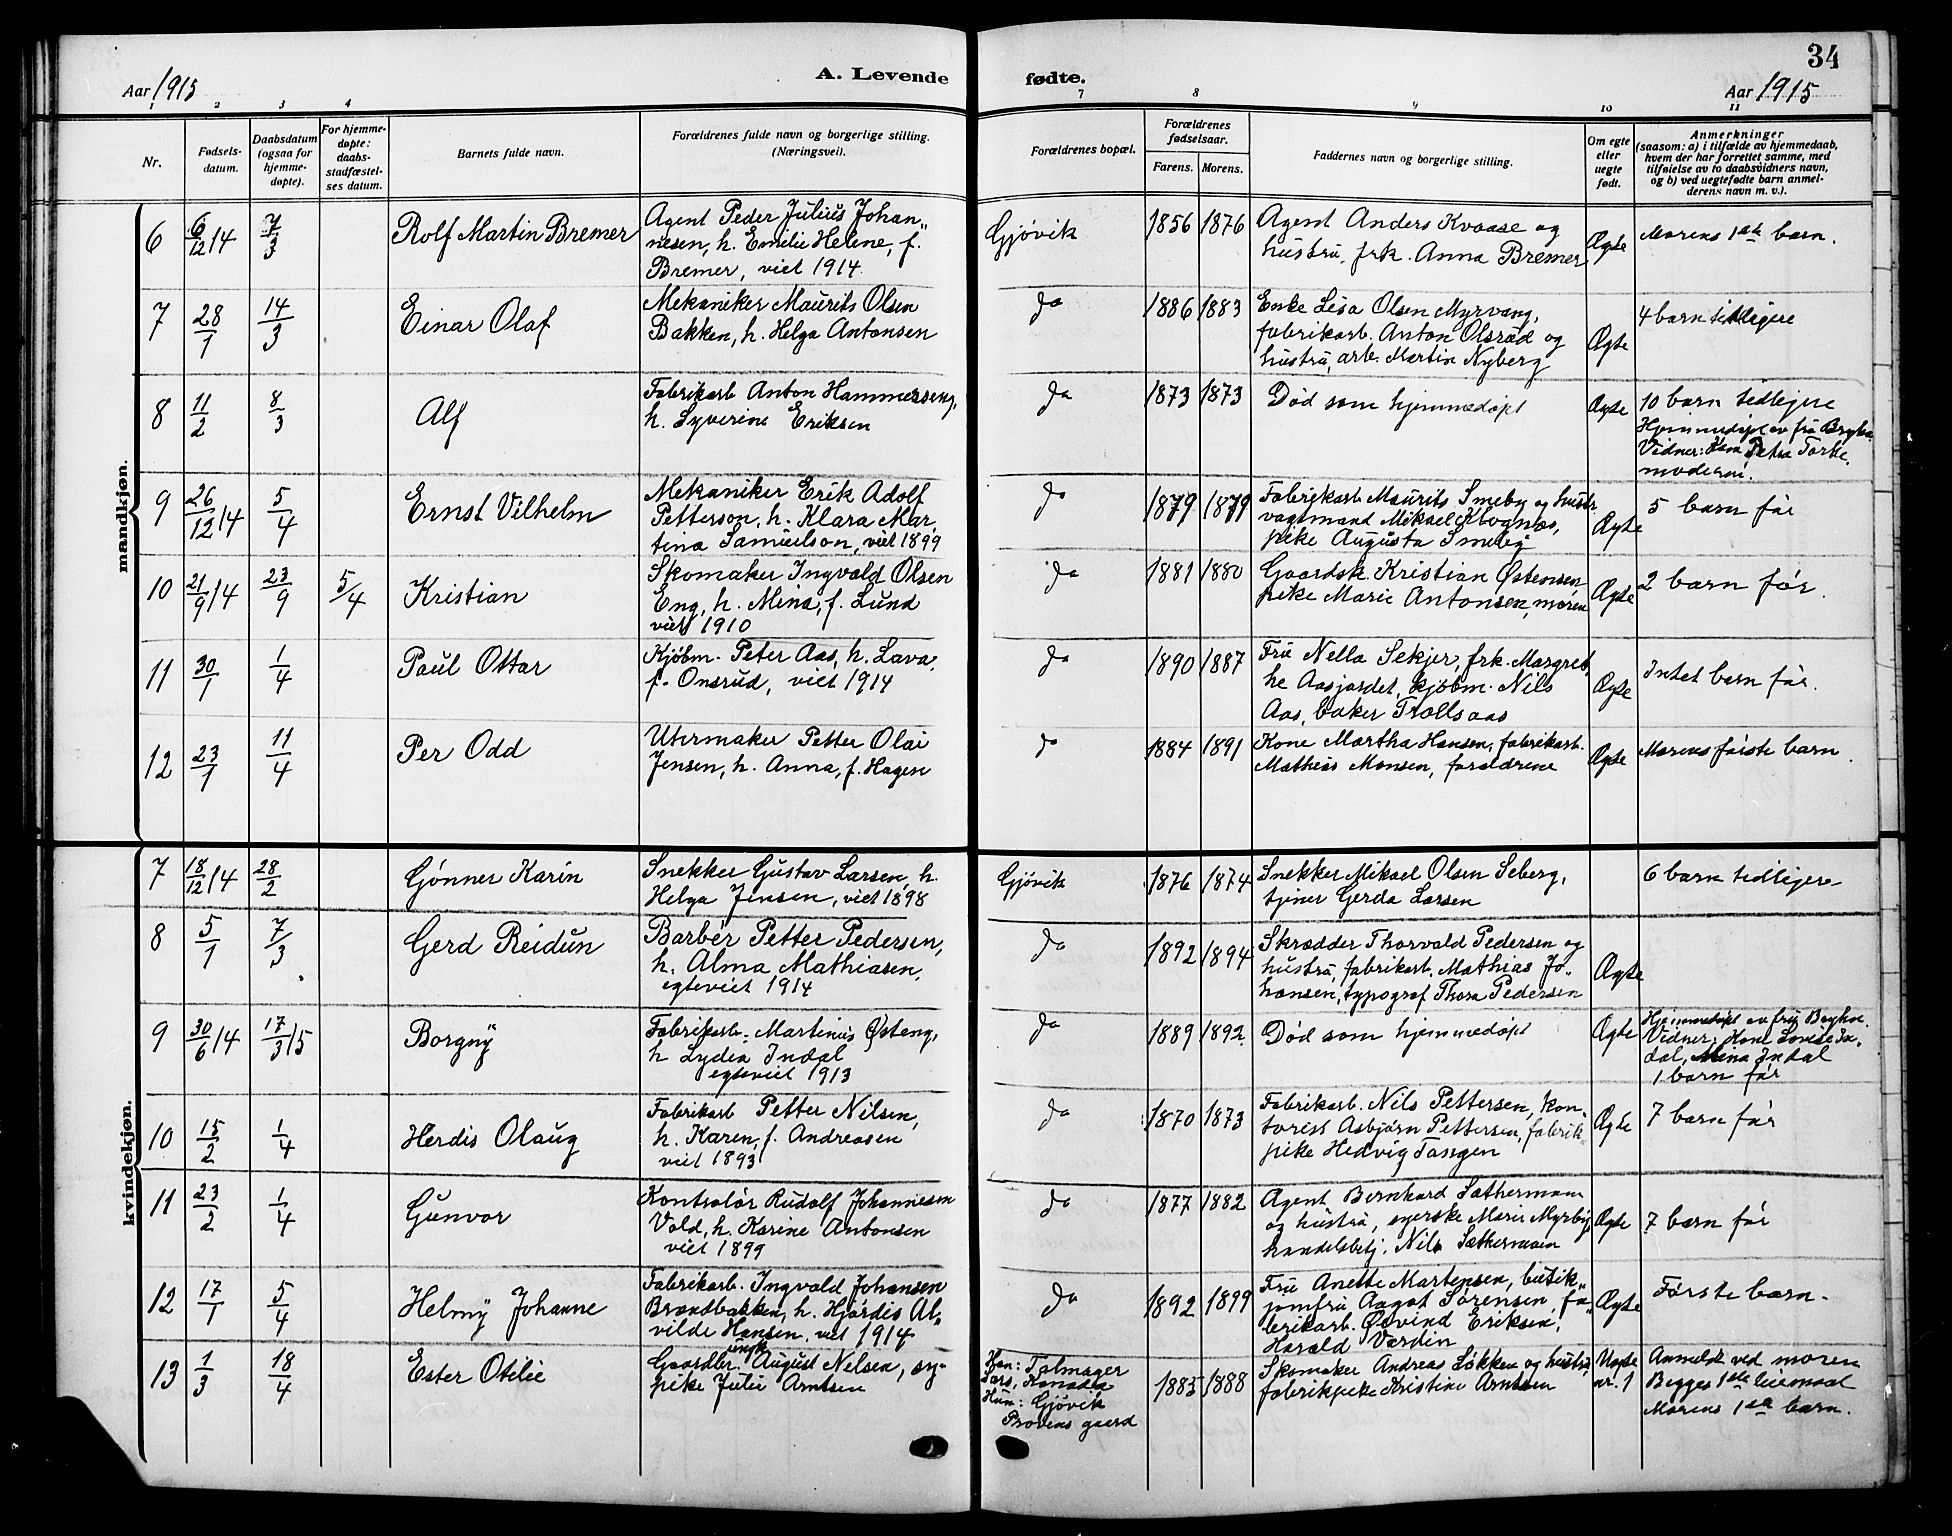 34
Aar 1915 A. Levende fødte. Aar 1915
1 2 3 4 7 8 9 10 11
Nr.
Fødsels-
datum.
Daabsdatum
(ogsaa for
hjemme-
døpte).
For hjemme-
døpte:
daabs-
stadfæstel-
ses datum.
Barnets fulde navn.
Forældrenes fulde navn og borgerlige stilling.
(Næringsvei).
Forældrenes bopæl.
Forældrenes
fødselsaar.
Farens. Morens.
Faddernes navn og borgerlige stilling.
Om egte
eller
uegte
født.
Anmerkninger
(saasom: a) i tilfælde av hjemmedaab,
hvem der har forrettet samme, med
tilføielse av to daabsvidners navn,
og b) ved uegtefødte barn anmel-
derens navn m. v.).
mandkjøn.
6 6/12 14 7/3 Rolf Martin Bremer
Agent Peder Julius Johan"
nesen, h. Emilie Helene, f.
Bremer, viet 1914.
Gjøvik 1856 1876
Agent Anders Kvaase og
hustru, frk. Anna Bremer
Ægte
Morens 1ste barn.
7 28/1 14/3 Einar Olaf
Mekaniker Maurits Olsen
Bakken, h. Helga Antonsen
do 1886 1883
Enke Lisa Olsen Myrvang,
fabrikarb. Anton Olsrud og
hustru, arb. Martin Nyberg
Ægte
4 barn tidligere
8 11/2 8/3 Alf
Fabrikarb Anton Hammerseng,
h. Syverine Eriksen
do 1873 1873
Død som hjemmedøpt
Ægte
10 barn tidligere
Hjemmedøpt av fru
Vidner: Kone Petra
moderen.
9 26/12 14 5/4 Ernst Vilhelm
Mekaniker Erik Adolf
Petterson, h. Klara Mar,
tina Samuelson, viet 1899
do 1879 1879
Fabrikarb Maurits Smeby og hustr
vagtmand Mikael
pike Augusta Smeby
Ægte
5 barn før
10 21/9 14 23/9 5/4 Kristian
Skomaker Ingvald Olsen
Eng, h. Mena, f. Lund
viet 1910
do 1881 1880
Gaardsk. Kristian Østensen,
pike Marie Antonsen, moren
Ægte
2 barn før.
11 30/1 1/4 Paul Ottar
Kjøbm. Peter Aas, h. Lava,
f. Onsrud, viet 1914
do 1890 1887
Fru Nella Sekjer, frk. Margret,
he Aasjordet, kjøbm. Nils
Aas, baker Trollsaas
Ægte
Intet barn før.
12 23/1 11/4 Per Odd
Urmaker Petter Olai
Jensen, h. Anna, f. Hagen
do 1884 1891
Kone Martha Hansen, fabrikarb.
Mathias Monsen, forældrene
Ægte
Morens første barn.
kvindekjøn.
7 18/12 14 28/2 Gønner Karin
Snekker Gustav Larsen, h.
Helga Jensen, viet 1898
Gjøvik 1876 1874
Snekker Mikael Olsen Seberg,
tjener Gerda Larsen
6 barn tidligere
8 5/1 7/3 Gerd Reidun
Barbér Petter Pedersen,
h. Alma Mathiasen,
egteviet 1914
do 1892 1894
Skrædder Thorvald Pedersen og
hustru, fabrikarb. Mathias Jo-
hansen, typograf Thora Pedersen
Ægte
9 30/6 14 17/3 15 Borgny
Fabrikarb. Martinius Østeng,
h Lydia Indal
egteviet 1913
do 1889 1892
Død som hjemmedøpt
Ægte
Hjemmedøpt av fru
Vidner: Kone Lovise In,
dal, Mina Indal
1 barn før
10 15/2 1/4 Herdis Olaug
Fabrikarb Petter Nilsen,
h. Karen, f. Andreasen
viet 1893
do 1870 1873
Fabrikarb. Nils Pettersen, kon-
torist Asbjørn Pettersen, fabrik-
pike Hedvig Tangen
Ægte
7 barn før
11 23/2 1/4 Gunvor
Kontrolør Rudolf Johannesen
Vold, h. Karine Antonsen
viet 1899
do 1877 1882
Agent Bernhard Sæthermoen
og hustru, syerske Marie Myrby,
handelsbetj. Nils Sæthermoen
Ægte
7 barn før
12 17/1 5/4 Helmy Johanne
Fabrikarb. Ingvald Johansen
Brandbakken, h. Hjørdis Al,
vilde Hansen, viet 1914
do 1892 1899
Fru Anette Martensen, butik-
jomfru Aagot Sørensen, fa-
brikarb. Øivind Eriksen,
Harald Værdin
Ægte
Første barn.
13 1/3 18/4 Ester Otilie
ungk
Gaardbr. August Nelsen, sy-
pike Julie Arntsen
Han: Talmager
Sars, Kanada
Hun: Gjøvik
Provens gaard
1885 1888
Skomaker Andreas Løkken og hustru,
fabrikpike Kristine Arntsen
Uegte
nr. 1
Anmeldt ved moren
Begges 1ste leiermaal
Morens 1ste barn.